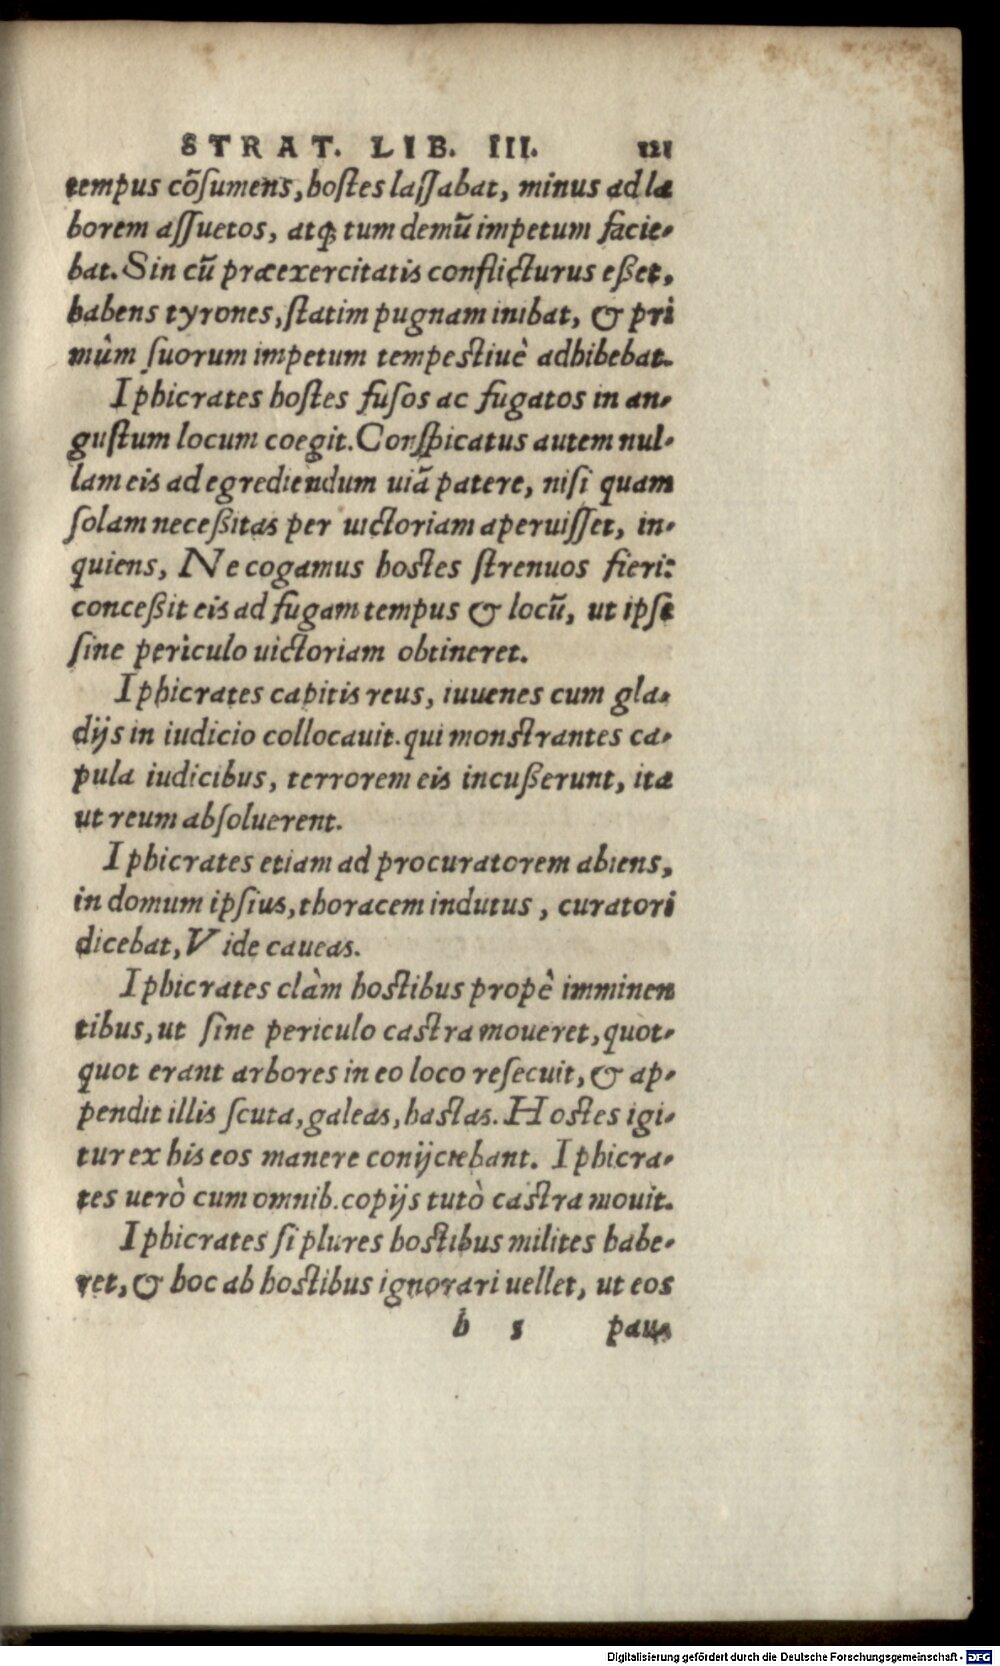 STRAT. LIB. III. 121
tempus cõſumens, hoſtes laſſabat, minus ad la
borem aſſuetos, atq; tum demũ impetum facie-
bat. Sin cũ præexercitatis conflicturus eßet,
habens tyrones, ſtatim pugnam inibat, & pri
mùm ſuorum impetum tempeſtiuè adhibebat.
Iphicrates hoſtes fuſos ac fugatos in an-
guſtum locum coegit. Conſpicatus autem nul-
lam eis ad egrediendum uiã patere, niſi quam
ſolam neceßitas per uictoriam aperuiſſet, in-
quiens, Ne cogamus hoſtes ſtrenuos fieri:
conceßit eis ad fugam tempus & locũ, ut ipſe
ſine periculo uictoriam obtineret.
Iphicrates capitis reus, iuuenes cum gla-
dijs in iudicio collocauit. qui monſtrantes ca-
pula iudicibus, terrorem eis incußerunt, ita
ut reum abſoluerent.
Iphicrates etiam ad procuratorem abiens,
in domum ipſius, thoracem indutus, curatori
dicebat, Vide caueas.
Iphicrates clàm hoſtibus propè imminen
tibus, ut ſine periculo caſtra moueret, quot-
quot erant arbores in eo loco reſecuit, & ap-
pendit illis ſcuta, galeas, haſtas. Hoſtes igi-
tur ex his eos manere conijciebant. Iphicra-
tes uerò cum omnib. copijs tutò caſtra mouit.
Iphicrates ſi plures hoſtibus milites habe-
ret, & hoc ab hoſtibus ignorari uellet, ut eos
h s pau-
Digitalisierung gefördert durch die Deutsche Forschungsgemeinschaft - DFG